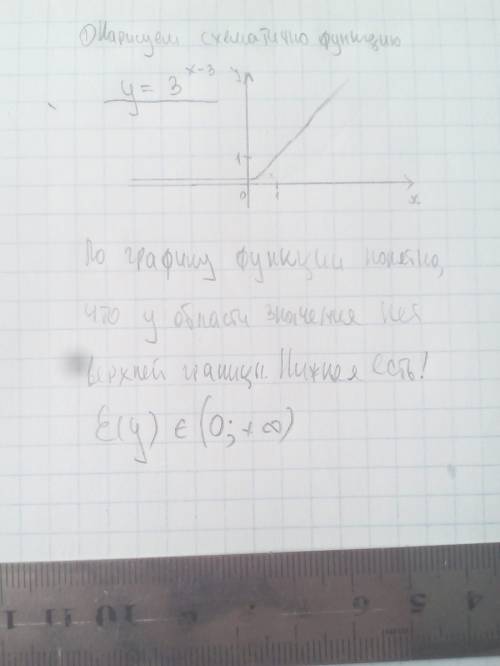 ① Нарисуем схематично функцию
y = 3^{x-3}
y
1
0 1
x
По графику функции понятно,
что у области значения нет
верхней границы. Нижняя есть!
E(y) ∈ (0; +∞)
11 10 6 5 4